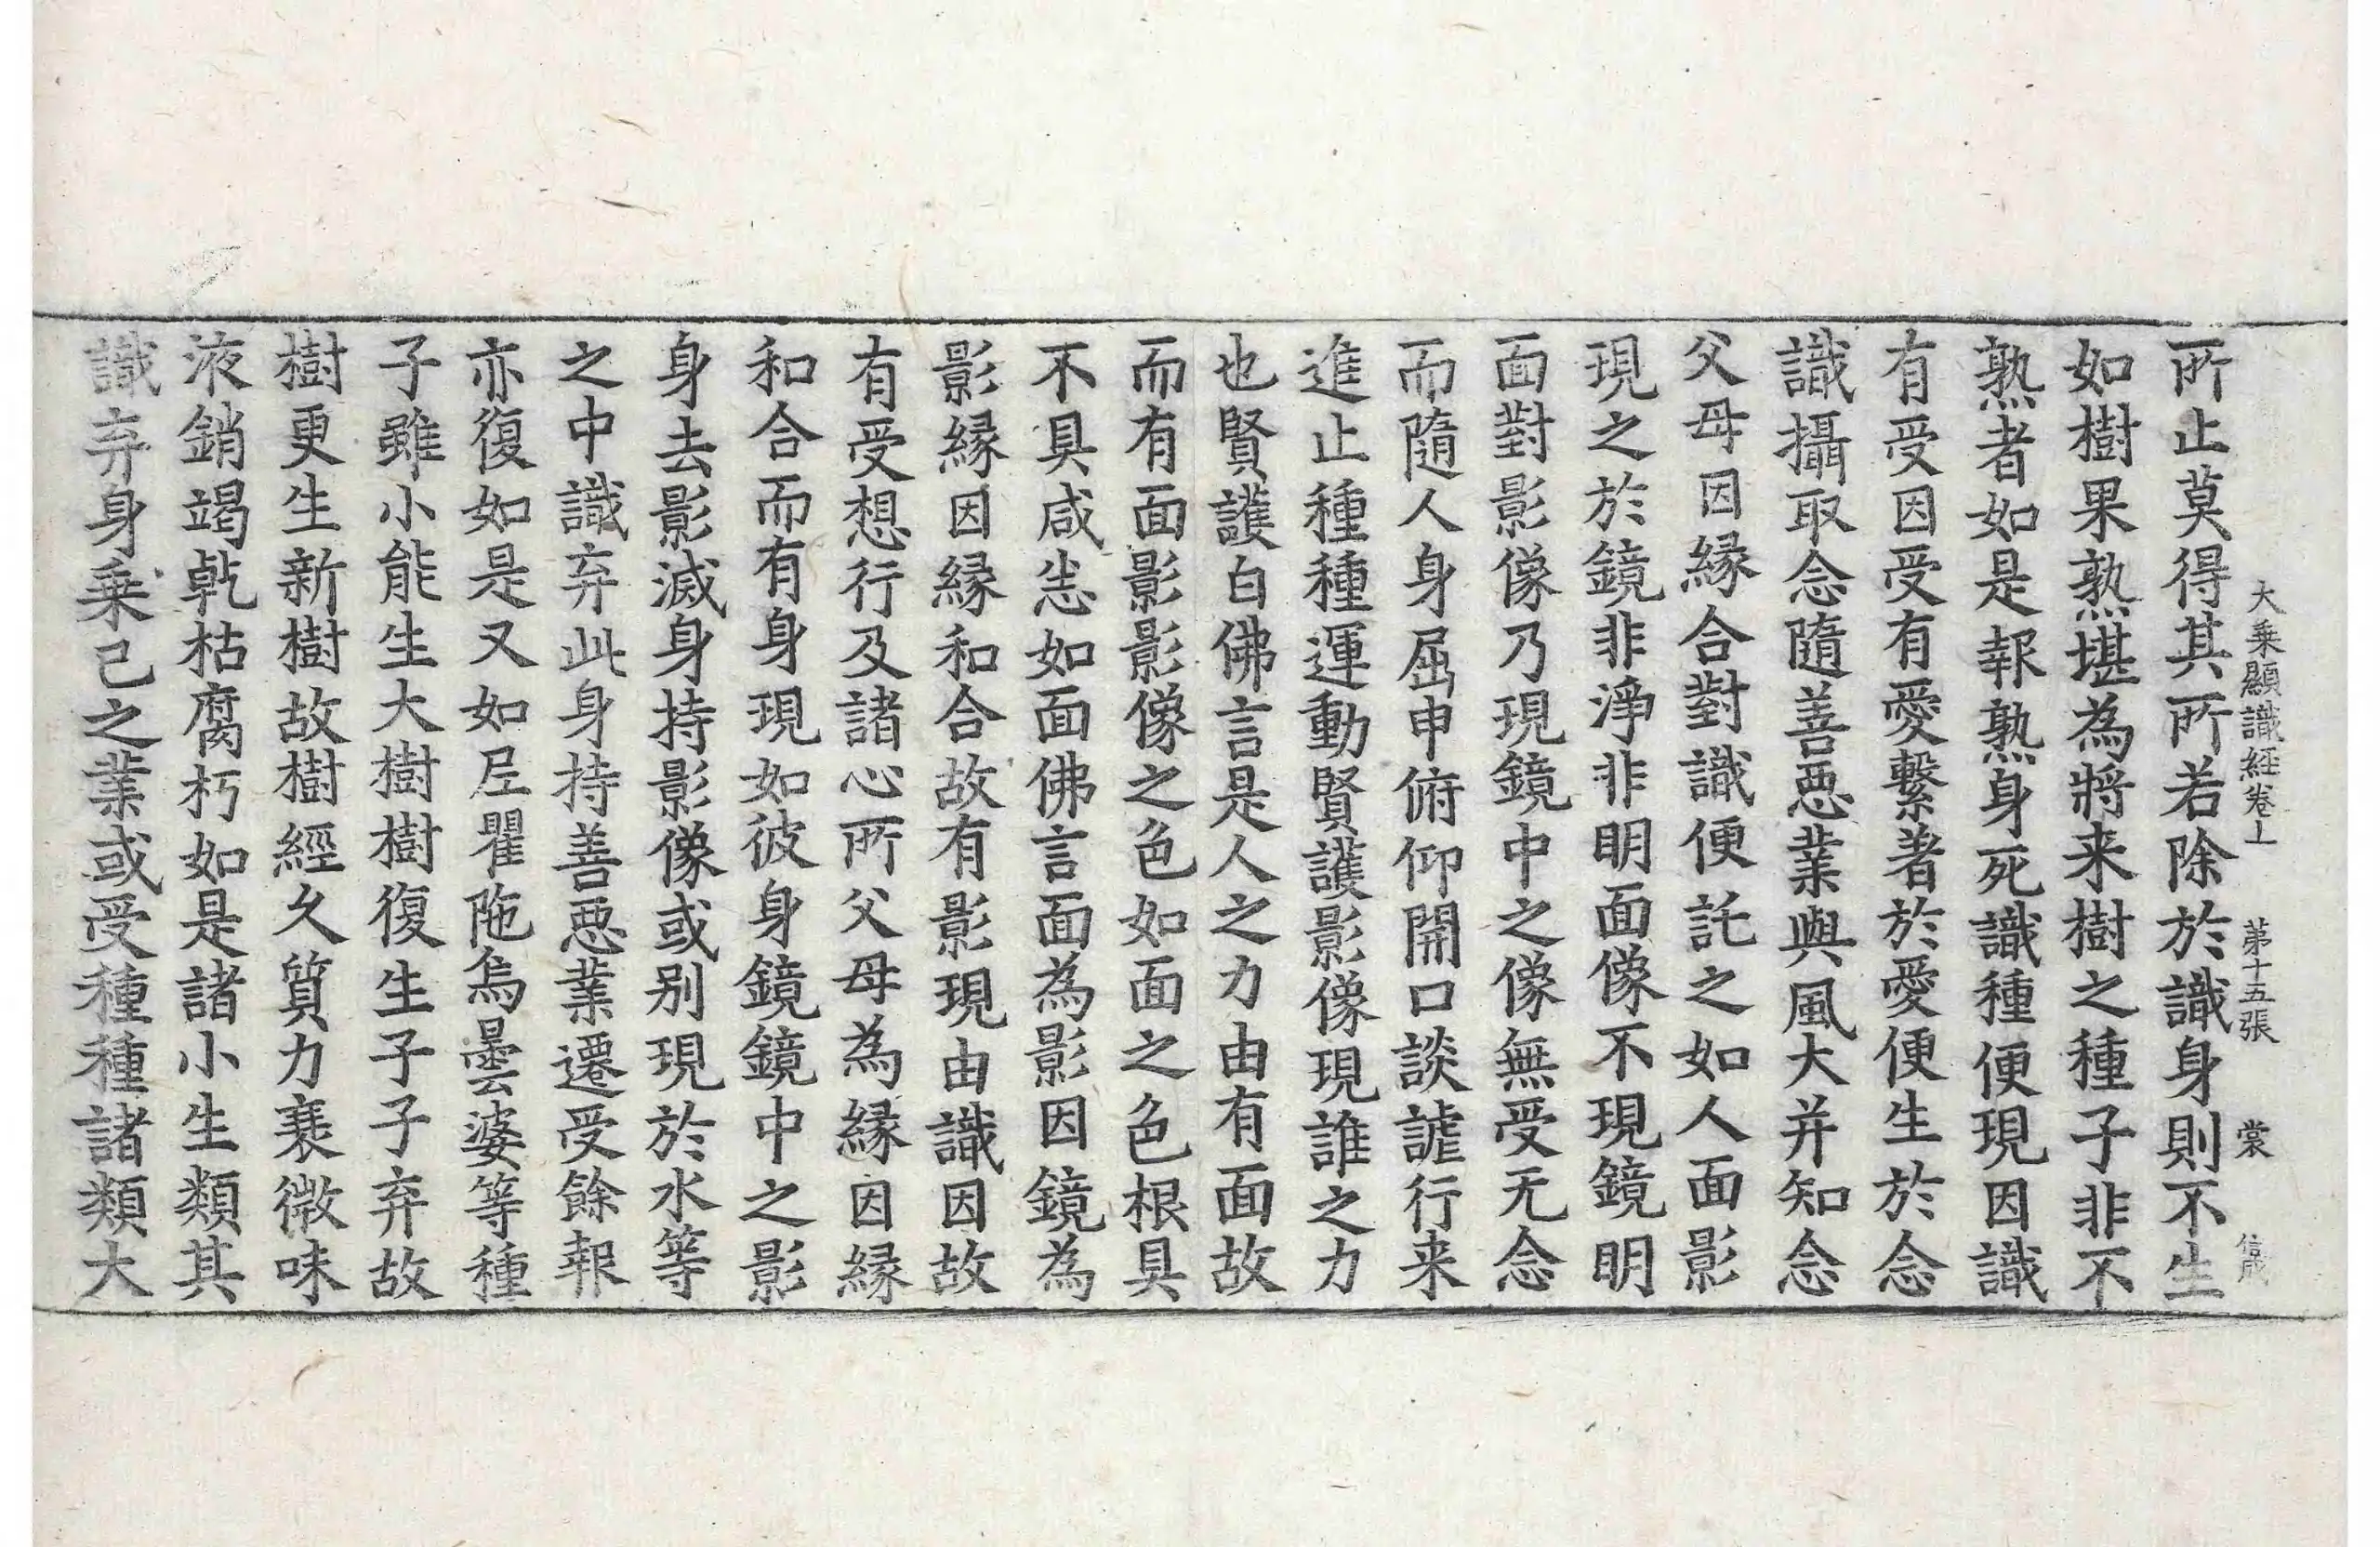 大乗顯識經卷上 第十五張 裳
所止莫得其所若除於識身則不生
如樹果熟堪為將来樹之種子非不
熟者如是報熟身死識種便現因識
有受因受有愛繫著於愛便生於念
識攝取念隨善惡業與風大并知念
父母因縁合對識便託之如人面影
現之於鏡非淨非明面像不現鏡明
面對影像乃現鏡中之像無受无念
而隨人身屈申俯仰開口談謔行来
進止種種運動賢護影像現誰之力
也賢護白佛言是人之力由有面故
而有面影影像之色如面之色根具
不具咸悉如面佛言面為影因鏡為
影縁因縁和合故有影現由識因故
有受想行及諸心所父母為縁因縁
和合而有身現如彼身鏡鏡中之影
身去影滅身持影像或別現於水等
之中識弃此身持善惡業遷受餘報
亦復如是又如尼瞿陁烏曇婆等種
子雖小能生大樹樹復生子子弃故
樹更生新樹故樹經久質力衰微味
液銷竭乾枯腐朽如是諸小生類其
識弃身乗己之業或受種種諸類大